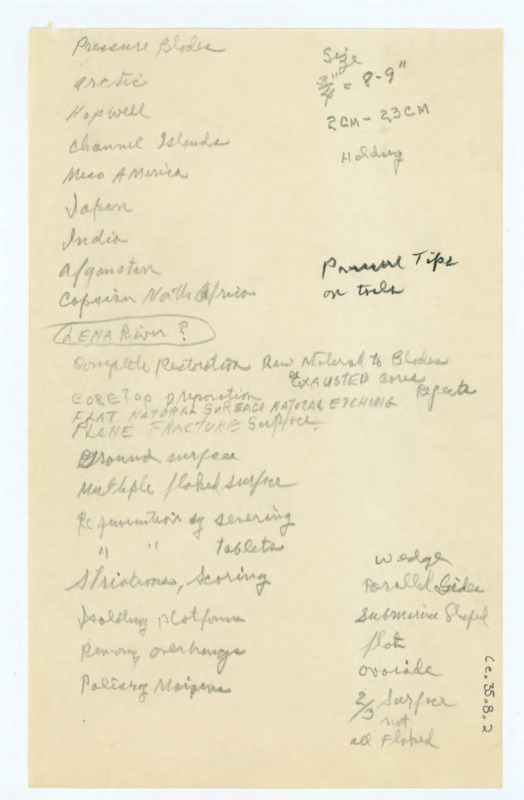 Pressure Blades
Arctic
Hopwell
Channel Islands
Meso America
Japan
India
Afganstan
Capsian North Africa
LENA River ?
Size
3/4" = 8-9"
2CM - 23CM
Holding
Pressure Tips
on tools
Complete Restoration Raw Material to Blades
& EXAUSTED cores
Rejects
CORE Top preparation
FLAT NATURAL SURFACE NATURAL ETCHING
PLANE FRACTURE Surface.
Ground surface
Multiple flaked surface
Rejuvination by severing
" " tablets
Striations, Scoring
Isolating platforms
Removing overhangs
Polishing Margins
Wedge
Parallel Sides
Submarine Shaped
flat
ovoide
2/3 Surface
not
all Flaked
Cc.35.8.2